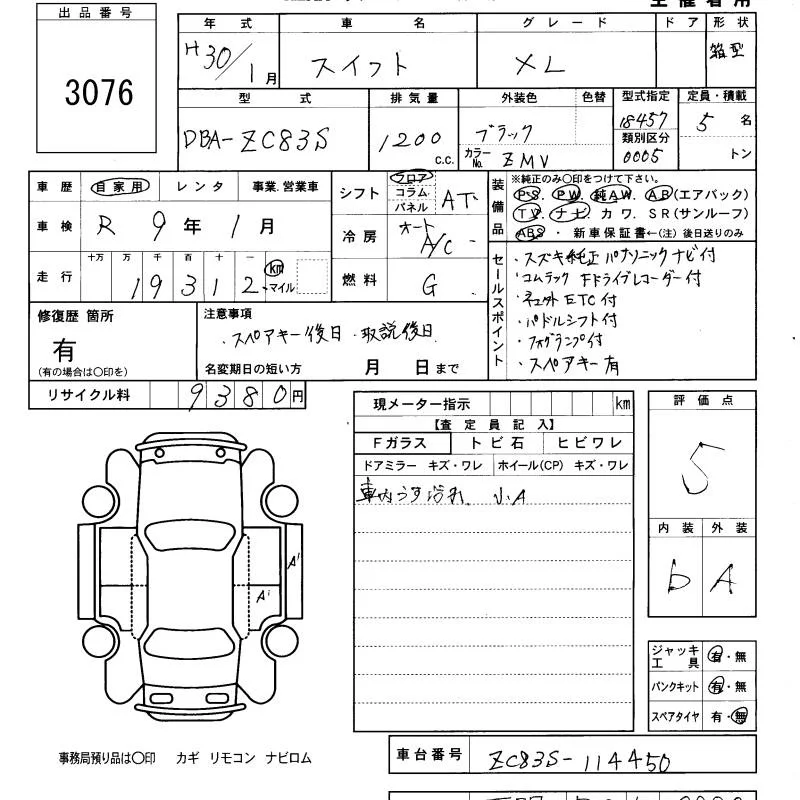 出品番号
3076
年式
車名
グレード
ドア
形状
H30/1月
スイフト
XL
箱型
型式
排気量
外装色
色替
型式指定
定員・積載
DBA-ZC83S
1200 c.c.
ブラック
カラーNo. ZMV
18457
類別区分
0005
5名
トン
車歴
自家用
レンタ
事業.営業車
車検
R 9年 1月
走行
十万 万 千 百 十 一
19312 km・マイル
シフト
フロア
コラム
パネル
AT
冷房
オート A/C
燃料
G
装備品
※純正のみ〇印をつけて下さい。
P・S. P.W. 純A.W. A.B(エアバック)
T.V. ナビ. カワ. S R(サンルーフ)
ABS ・ 新車保証書←(注)後日送りのみ
セールスポイント
・スズキ純正 パナソニック ナビ付
・コムテック Fドライブレコーダー付
ETC付
・パドルシフト付
・フォグランプ付
・スペアキー有
修復歴 箇所
有
(有の場合は〇印を)
注意事項
・スペアキー後日・取説後日
名変期日の短い方 月 日まで
リサイクル料 9380円
現メーター指示 km
【査定員記入】
Fガラス
トビ石
ヒビワレ
ドアミラー キズ・ワレ
ホイール(CP) キズ・ワレ
車内うす汚れ 小A
A¹
A¹
評価点
5
内装
外装
b
A
ジャッキ工具 有・無
パンクキット 有・無
スペアタイヤ 有・無
事務局預り品は〇印 カギ リモコン ナビロム
車台番号
ZC83S-114450